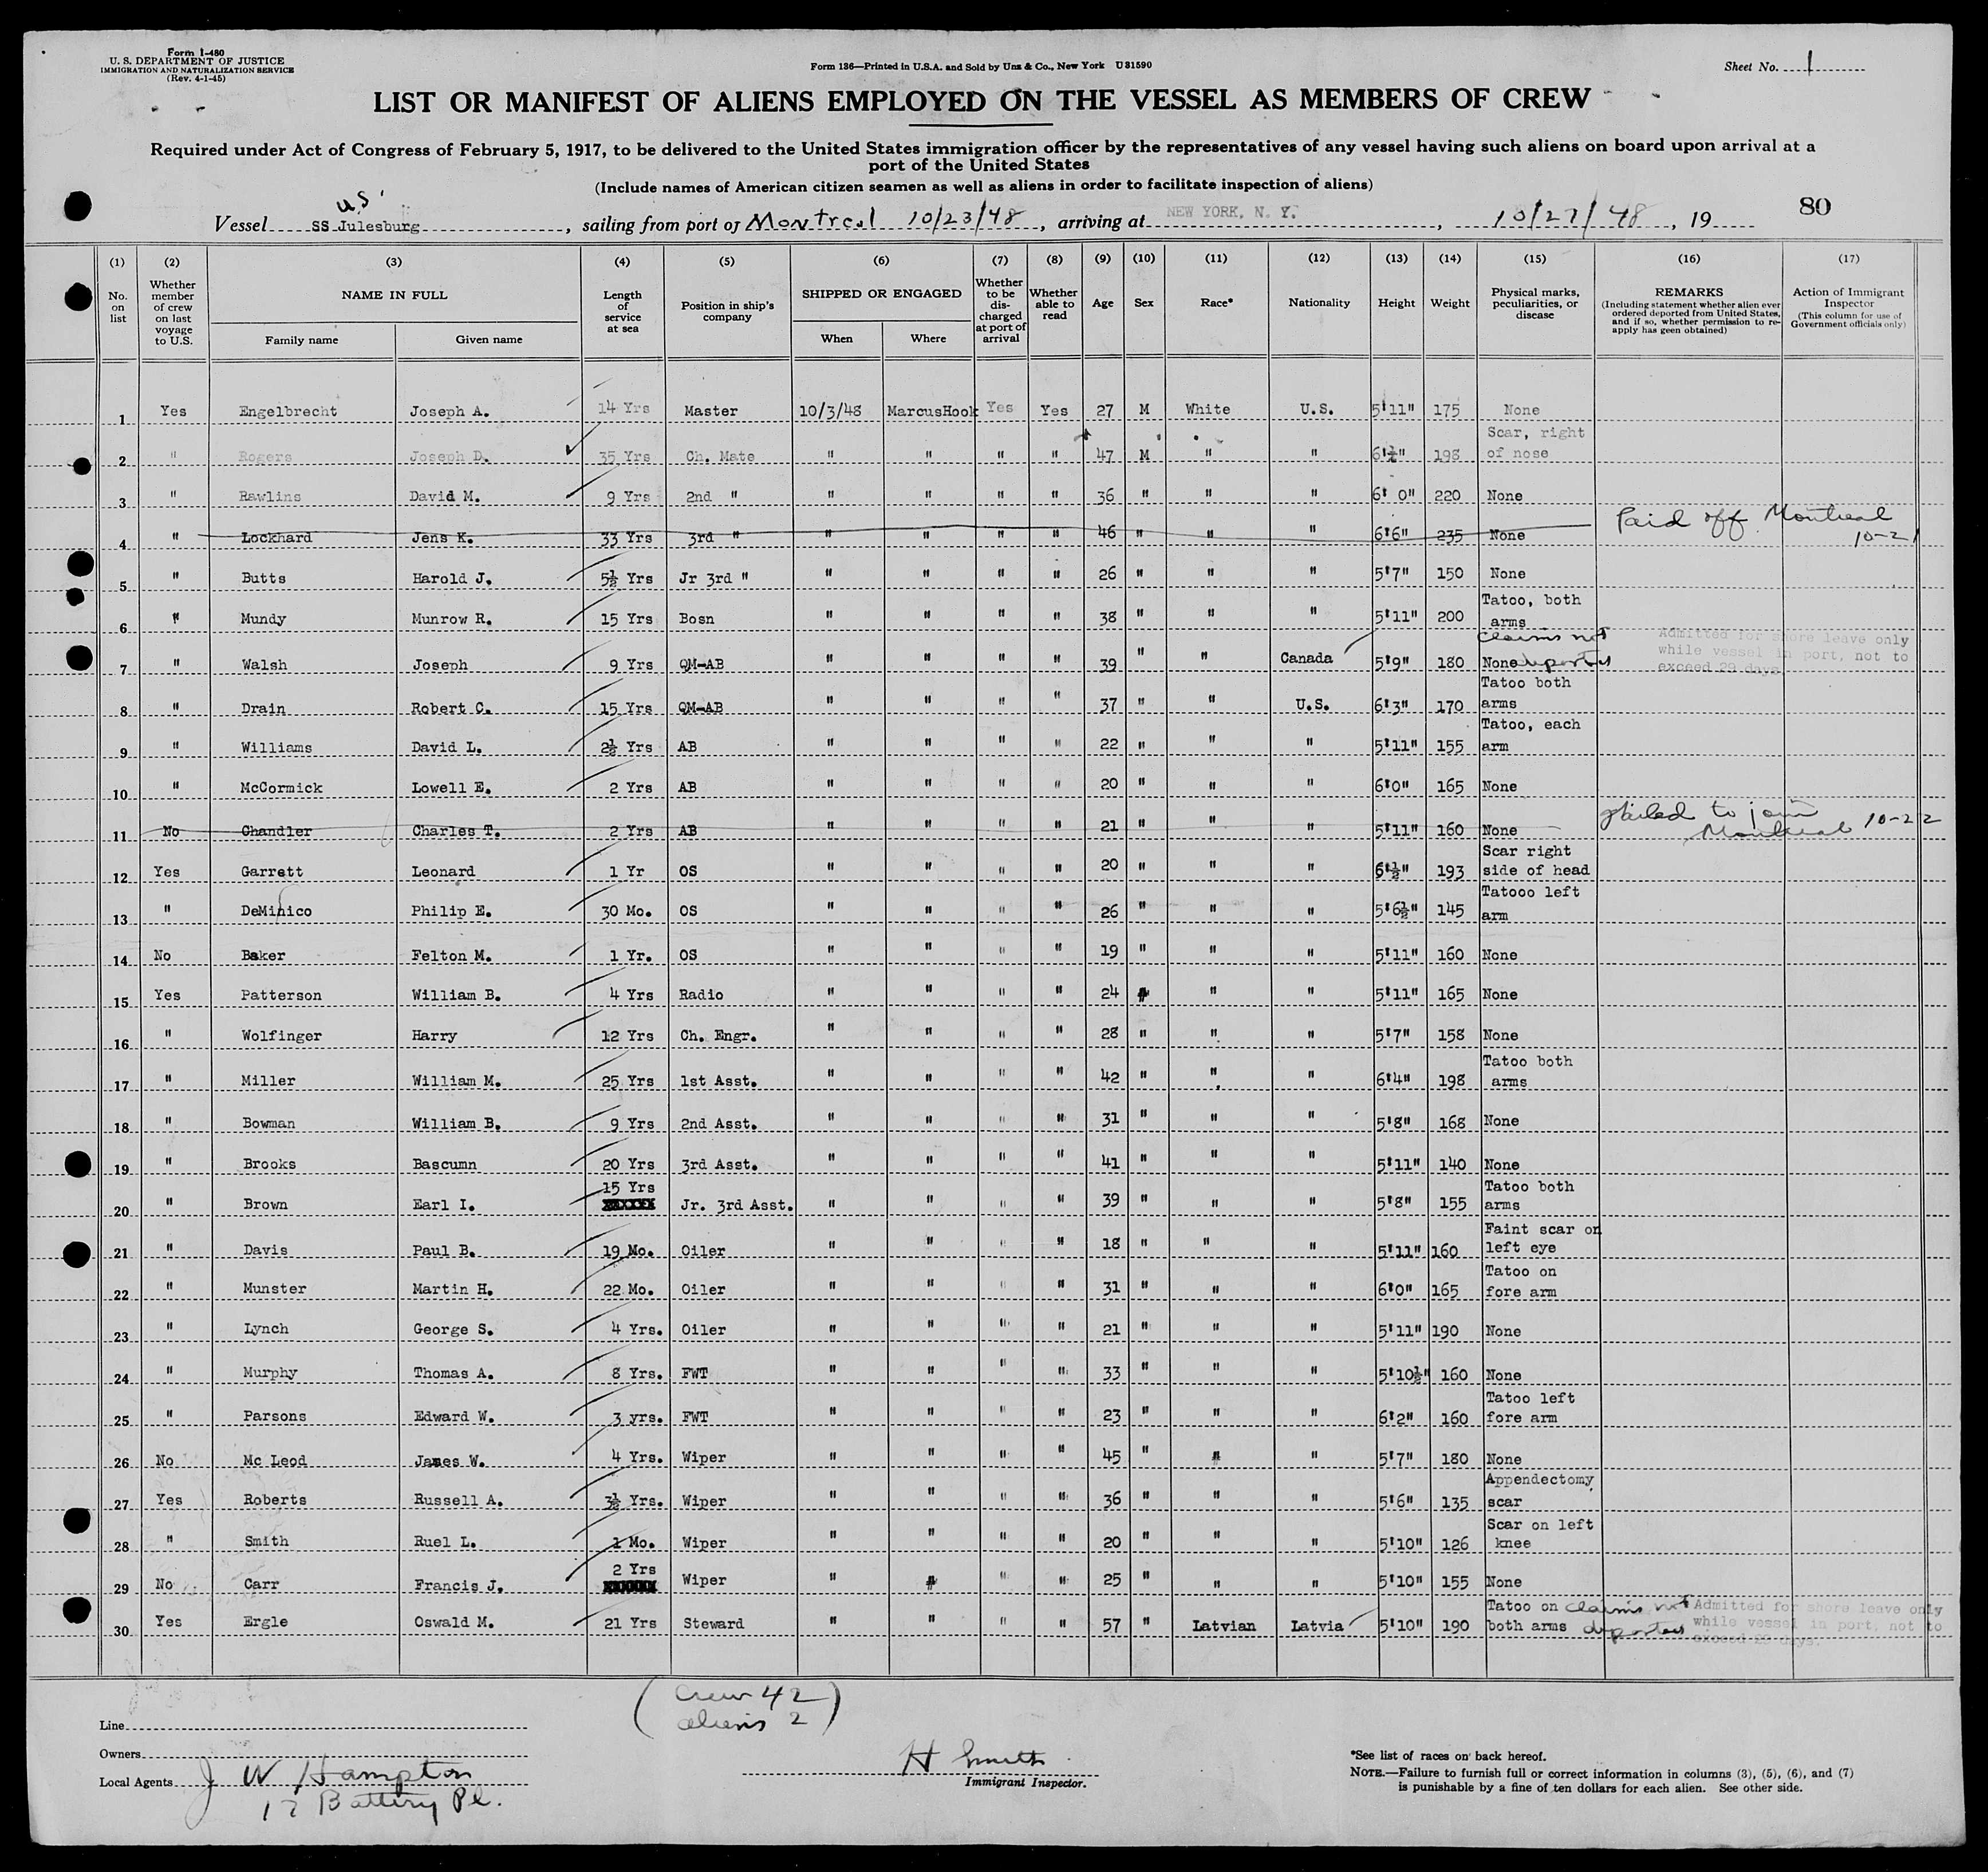 Form I-480
U. S. DEPARTMENT OF JUSTICE
IMMIGRATION AND NATURALIZATION SERVICE
(Rev. 4-1-45)
Form 136—Printed in U.S.A. and Sold by Unz & Co., New York U 31590
Sheet No. 1
LIST OR MANIFEST OF ALIENS EMPLOYED ON THE VESSEL AS MEMBERS OF CREW
Required under Act of Congress of February 5, 1917, to be delivered to the United States immigration officer by the representatives of any vessel having such aliens on board upon arrival at a
port of the United States
(Include names of American citizen seamen as well as aliens in order to facilitate inspection of aliens)
80
U.S.
Vessel SS Julesburg, sailing from port of Montreal 10/23/48, arriving at NEW YORK, N. Y., 10/27/48, 19
(1) (2) (3) (4) (5) (6) (7) (8) (9) (10) (11) (12) (13) (14) (15) (16) (17)
No. on list
Whether member of crew on last voyage to U.S.
NAME IN FULL
Family name Given name
Length of service at sea
Position in ship's company
SHIPPED OR ENGAGED
When Where
Whether to be discharged at port of arrival
Whether able to read
Age Sex Race* Nationality Height Weight
Physical marks, peculiarities, or disease
REMARKS
(Including statement whether alien ever ordered deported from United States, and if so, whether permission to re-apply has geen obtained)
Action of Immigrant Inspector
(This column for use of Government officials only)
1 Yes Engelbrecht Joseph A. 14 Yrs Master 10/3/48 MarcusHook Yes Yes 27 M White U.S. 5'11" 175 None
2 " Rogers Joseph D. 35 Yrs Ch. Mate " " " " 47 M " " 6'½" 198 Scar, right of nose
3 " Rawlins David M. 9 Yrs 2nd " " " " " 36 " " " 6' 0" 220 None
4 " Lockhard Jens K. 33 Yrs 3rd " " " " " 46 " " " 6'6" 235 None Paid off Montreal 10-21
5 " Butts Harold J. 5½ Yrs Jr 3rd " " " " " 26 " " " 5'7" 150 None
6 " Mundy Munrow R. 15 Yrs Bosn " " " " 38 " " " 5'11" 200 Tatoo, both arms
7 " Walsh Joseph 9 Yrs QM-AB " " " " 39 " " Canada 5'9" 180 None claims not deported Admitted for shore leave only while vessel in port, not to exceed 29 days.
8 " Drain Robert C. 15 Yrs QM-AB " " " " 37 " " U.S. 6'3" 170 Tatoo both arms
9 " Williams David L. 2½ Yrs AB " " " " 22 " " " 5'11" 155 Tatoo, each arm
10 " McCormick Lowell E. 2 Yrs AB " " " " 20 " " " 6'0" 165 None
11 No Chandler Charles T. 2 Yrs AB " " " " 21 " " " 5'11" 160 None Failed to join Montreal 10-22
12 Yes Garrett Leonard 1 Yr OS " " " " 20 " " " 6'½" 193 Scar right side of head
13 " DeMinico Philip E. 30 Mo. OS " " " " 26 " " " 5'6½" 145 Tatooo left arm
14 No Baker Felton M. 1 Yr. OS " " " " 19 " " " 5'11" 160 None
15 Yes Patterson William B. 4 Yrs Radio " " " " 24 " " " 5'11" 165 None
16 " Wolfinger Harry 12 Yrs Ch. Engr. " " " " 28 " " " 5'7" 158 None
17 " Miller William M. 25 Yrs 1st Asst. " " " " 42 " " " 6'4" 198 Tatoo both arms
18 " Bowman William B. 9 Yrs 2nd Asst. " " " " 31 " " " 5'8" 168 None
19 " Brooks Bascumn 20 Yrs 3rd Asst. " " " " 41 " " " 5'11" 140 None
20 " Brown Earl I. 15 Yrs Jr. 3rd Asst. " " " " 39 " " " 5'8" 155 Tatoo both arms
21 " Davis Paul B. 19 Mo. Oiler " " " " 18 " " " 5'11" 160 Faint scar on left eye
22 " Munster Martin H. 22 Mo. Oiler " " " " 31 " " " 6'0" 165 Tatoo on fore arm
23 " Lynch George S. 4 Yrs. Oiler " " " " 21 " " " 5'11" 190 None
24 " Murphy Thomas A. 8 Yrs. FWT " " " " 33 " " " 5'10½" 160 None
25 " Parsons Edward W. 3 yrs. FWT " " " " 23 " " " 6'2" 160 Tatoo left fore arm
26 No Mc Leod James W. 4 Yrs. Wiper " " " " 45 " " " 5'7" 180 None
27 Yes Roberts Russell A. 3½ Yrs. Wiper " " " " 36 " " " 5'6" 135 Appendectomy scar
28 " Smith Ruel L. 1 Mo. Wiper " " " " 20 " " " 5'10" 126 Scar on left knee
29 No Carr Francis J. 2 Yrs Wiper " " " " 25 " " " 5'10" 155 None
30 Yes Ergle Oswald M. 21 Yrs Steward " " " " 57 " Latvian Latvia 5'10" 190 Tatoo on both arms claims not deported Admitted for shore leave only while vessel in port, not to exceed 29 days.
(Crew 42
aliens 2)
Line
Owners
Local Agents J W Hampton
17 Battery Pl.
H Smith
Immigrant Inspector.
*See list of races on back hereof.
NOTE.—Failure to furnish full or correct information in columns (3), (5), (6), and (7)
is punishable by a fine of ten dollars for each alien. See other side.